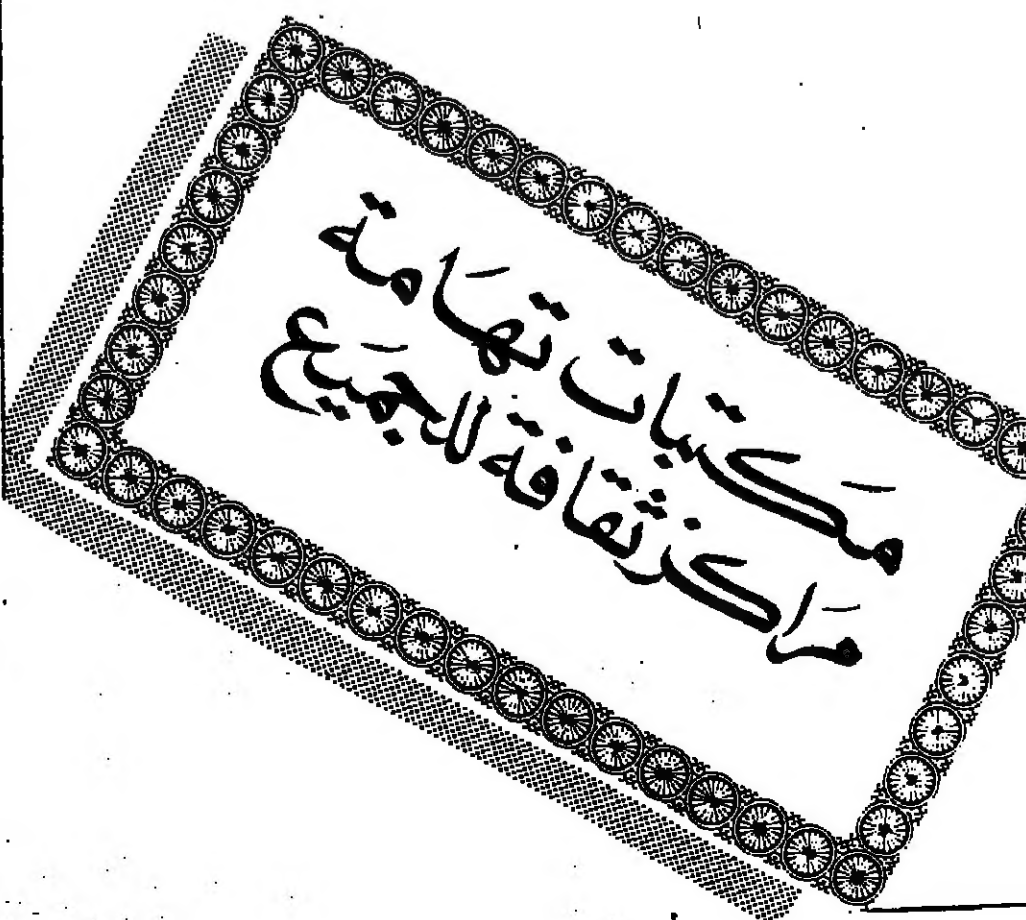 مَكتبات تهَامة
مَراكز ثقافة للجَميع